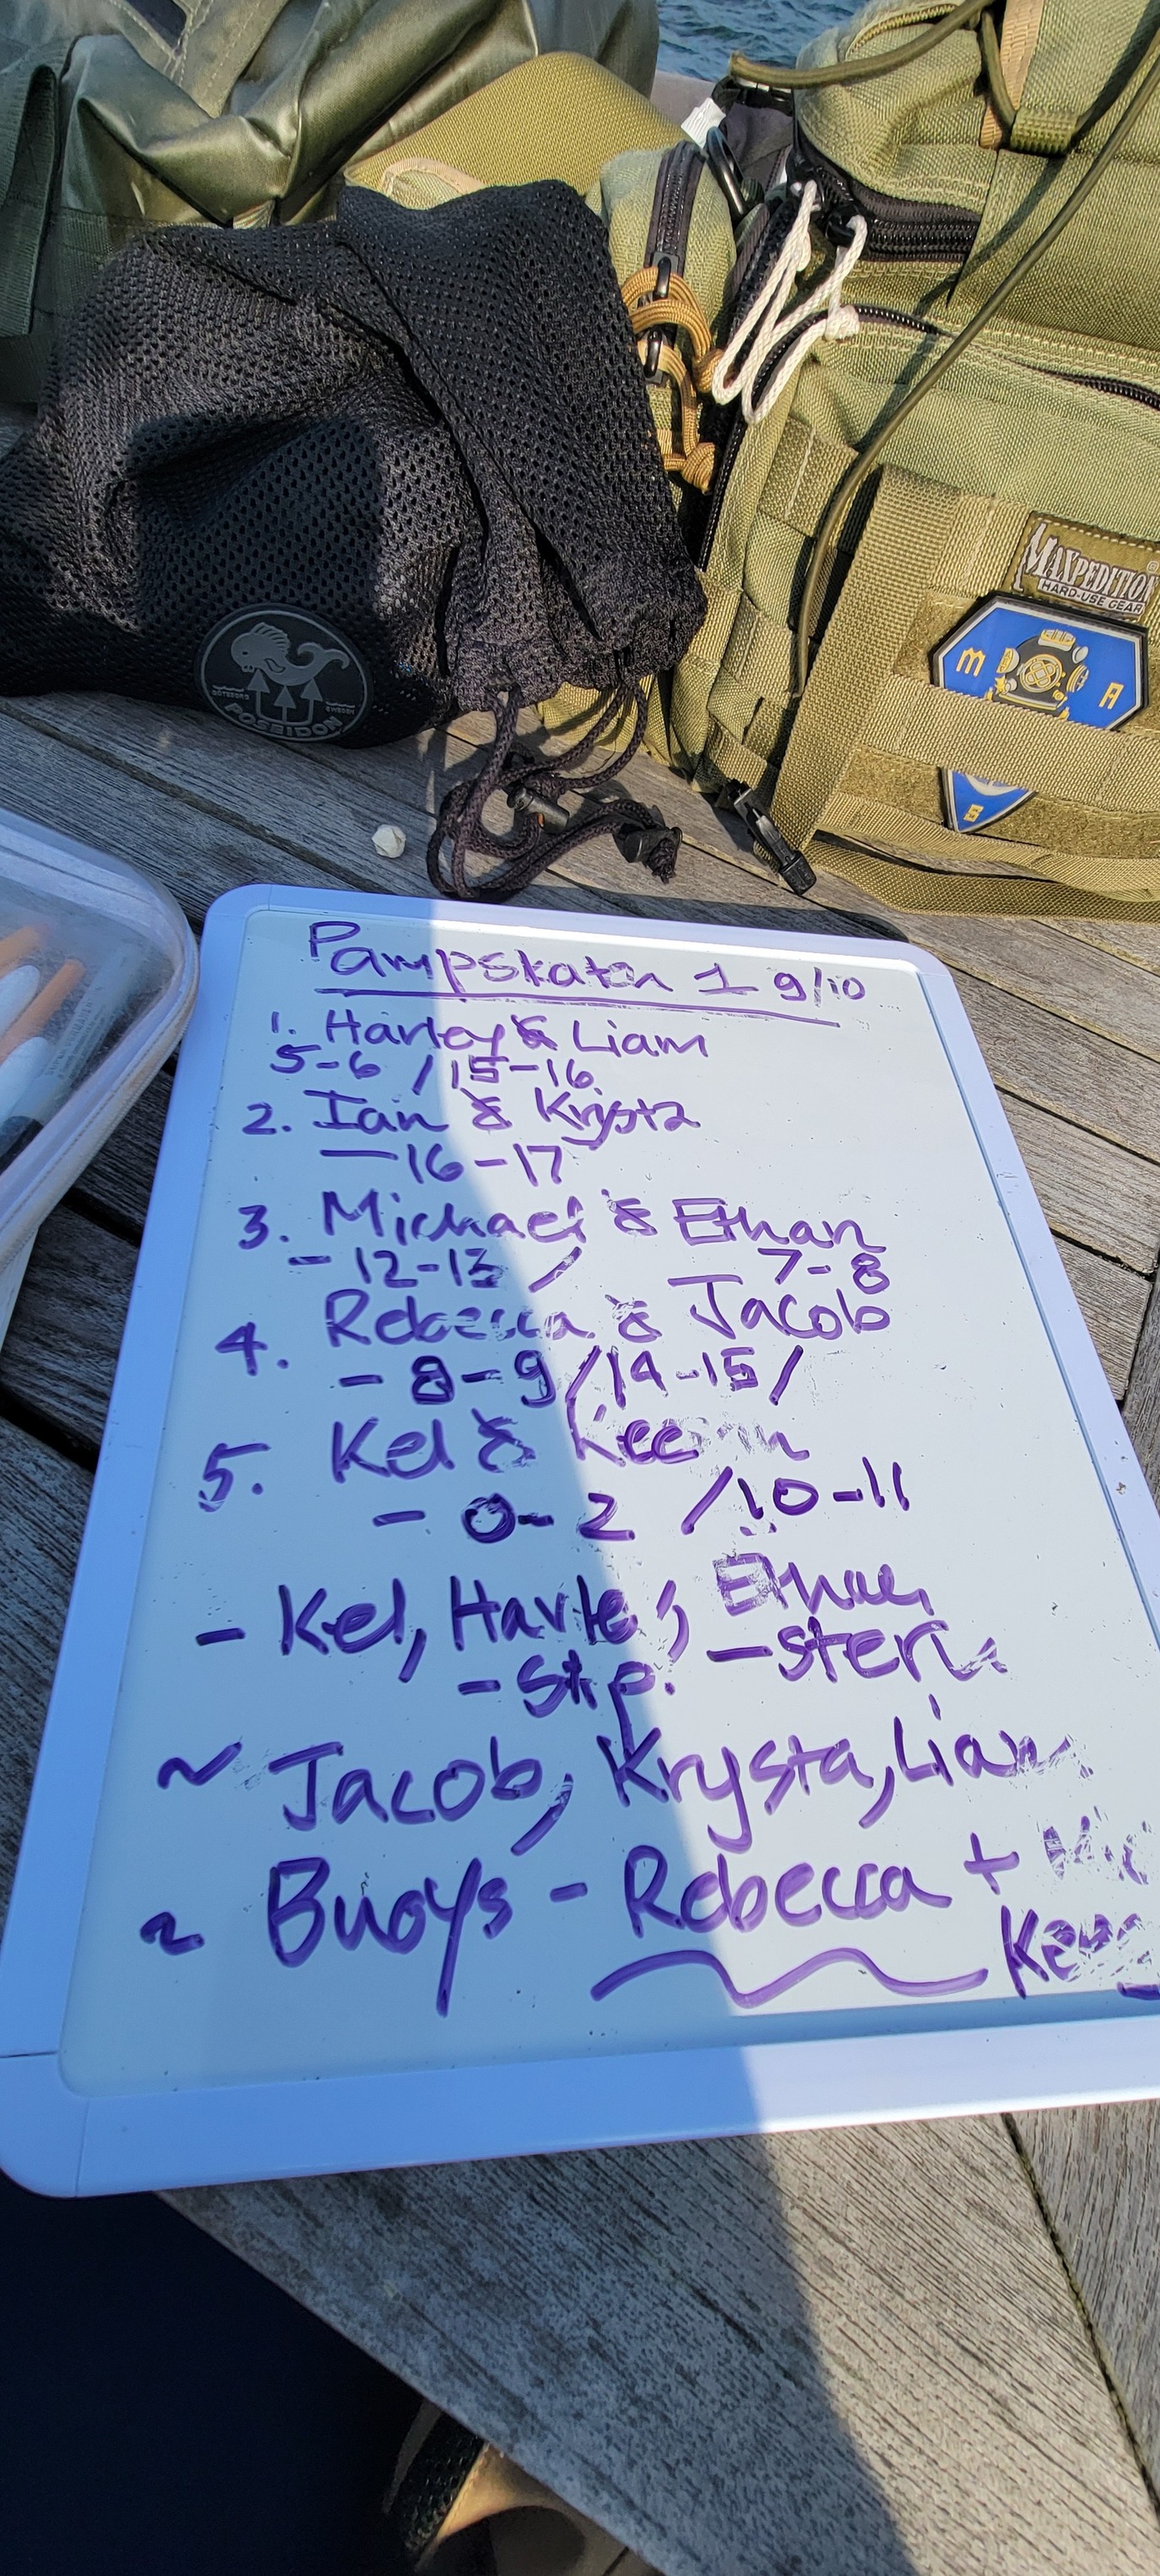 MAXPEDITION
HARD-USE GEAR
M A
GÖTEBORG SWEDEN
POSEIDON
Pampskatan 1 9/10
1. Harley & Liam
5-6 / 15-16
2. Ian & Krysta
— 16-17
3. Michael & Ethan
- 12-13 / 7-8
4. Rebecca & Jacob
- 8-9/14-15/
5. Kel &
- 0-2 /10-11
- Kel, Harle, Ethan
- Stp. - stern
~ Jacob, Krysta, Liam
~ Buoys - Rebecca + Mic